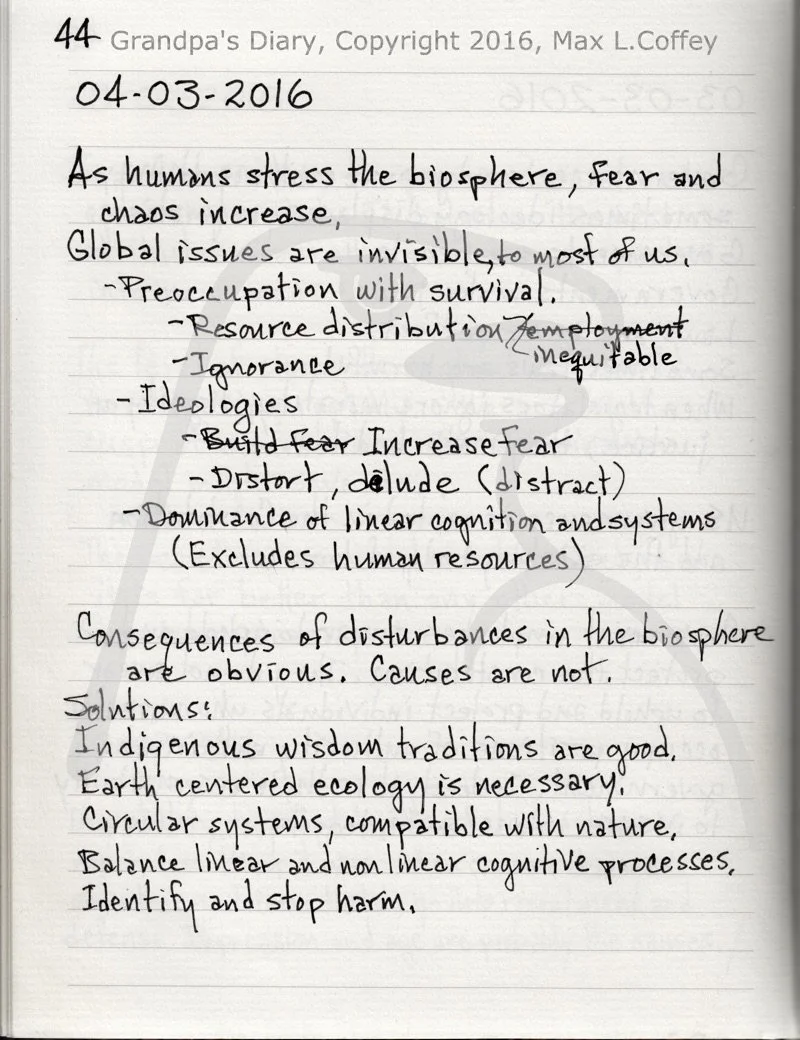 44 Grandpa's Diary, Copyright 2016, Max L.Coffey
04-03-2016
As humans stress the biosphere, fear and
chaos increase,
Global issues are invisible, to most of us.
-Preoccupation with survival.
-Resource distribution /employment
inequitable
-Ignorance
- Ideologies
-Build fear Increase fear
- Distort, delude (distract)
-Dominance of linear cognition and systems
(Excludes human resources)
Consequences of disturbances in the biosphere
are obvious. Causes are not.
Solutions:
Indigenous wisdom traditions are good.
Earth centered ecology is necessary.
Circular systems, compatible with nature.
Balance linear and nonlinear cognitive processes.
Identify and stop harm.